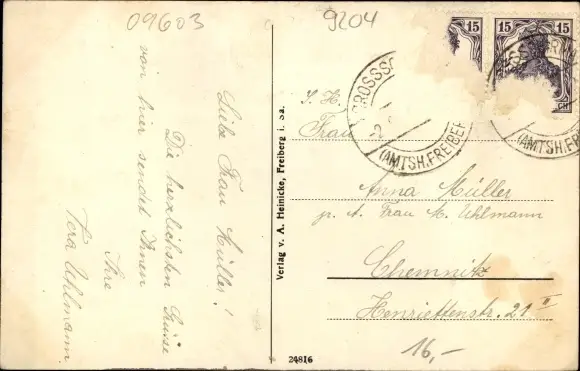 09603
9204
15
15
GROSSSC
(AMTSH.FREIBER
(AMTSH.FREIB
Liebe Frau Müller!
Die herzlichsten Grüsse
von hier sendet Ihnen
Ihre
Vera Uhlmann
Verlag v. A. Heinicke, Freiberg i. Sa.
24816
Frau
Anna Müller
Frau M. Uhlmann
Chemnitz
Henriettenstr. 21 II
16,-